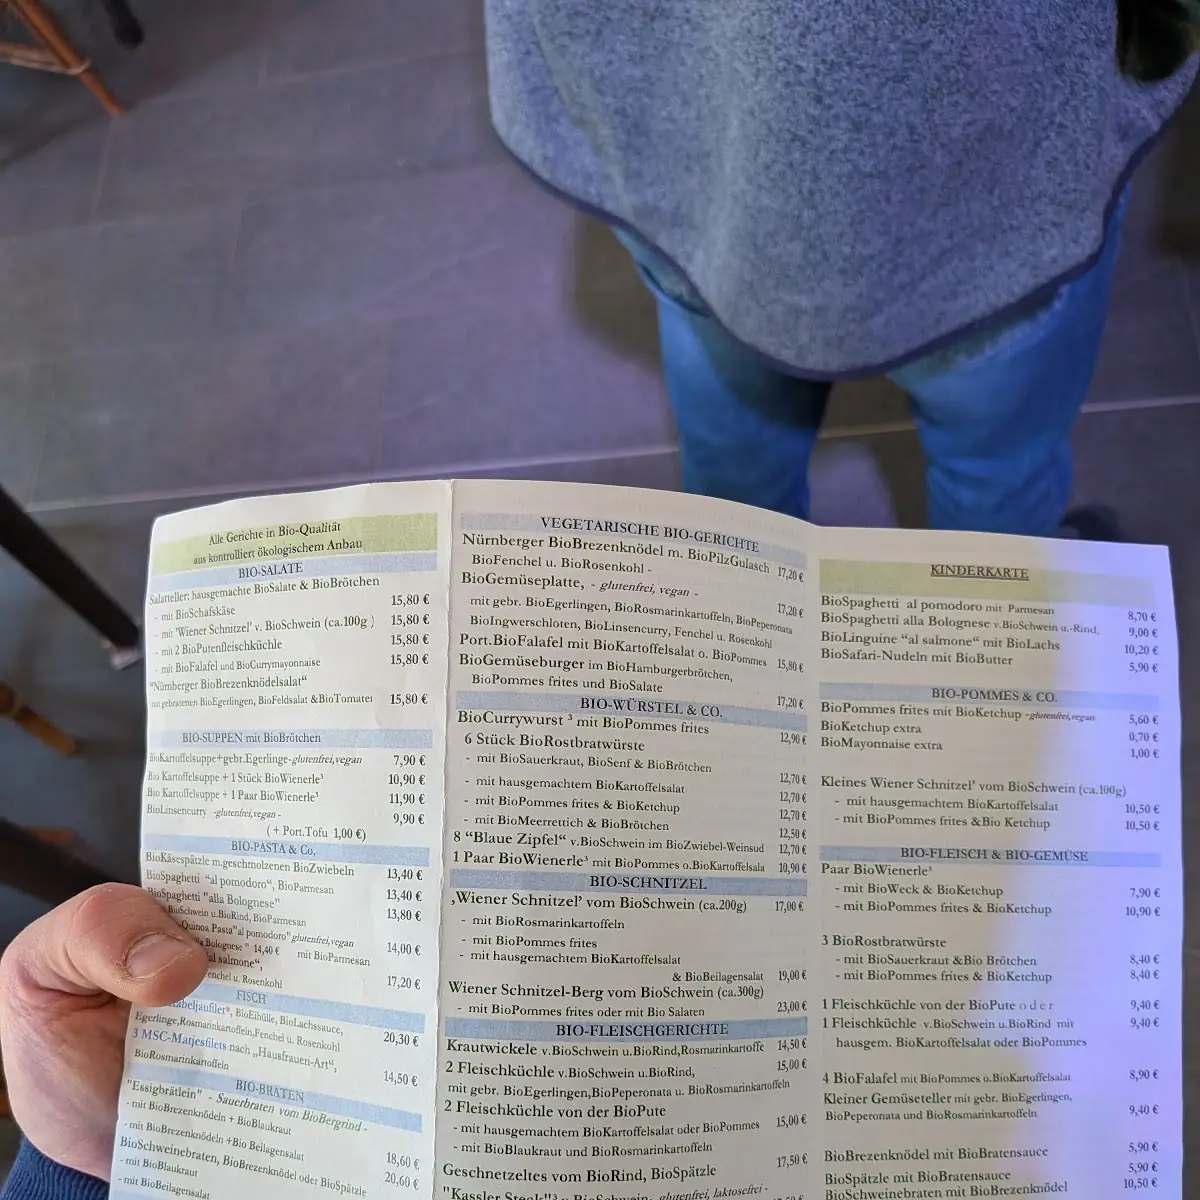 Alle Gerichte in Bio-Qualität
aus kontrolliert ökologischem Anbau
BIO-SALATE
Salatteller: hausgemachte BioSalate & BioBrötchen
- mit BioSchafskäse 15,80 €
- mit 'Wiener Schnitzel' v. BioSchwein (ca.100g ) 15,80 €
- mit 2 BioPutenfleischküchle 15,80 €
- mit BioFalafel und BioCurrymayonnaise 15,80 €
"Nürnberger BioBrezenknödelsalat“
mit gebratenen BioEgerlingen, BioFeldsalat &BioTomaten 15,80 €
BIO-SUPPEN mit BioBrötchen
BioKartoffelsuppe+gebr.Egerlinge-glutenfrei,vegan 7,90 €
Bio Kartoffelsuppe + 1 Stück BioWienerle³ 10,90 €
Bio Kartoffelsuppe + 1 Paar BioWienerle³ 11,90 €
BioLinsencurry -glutenfrei,vegan - 9,90 €
( + Port.Tofu 1,00 €)
BIO-PASTA & Co.
BioKäsespätzle m.geschmolzenen BioZwiebeln 13,40 €
BioSpaghetti "al pomodoro“, BioParmesan 13,40 €
BioSpaghetti "alla Bolognese" 13,80 €
BioSchwein u.BioRind, BioParmesan
-Quinoa Pasta"al pomodoro" glutenfrei,vegan 14,00 €
Bolognese " 14,40 € mit BioParmesan
al salmone“,
Fenchel u. Rosenkohl 17,20 €
FISCH
Kabeljaufilet*, BioEihülle, BioLachssauce,
Egerlinge,Rosmarinkartoffeln,Fenchel u. Rosenkohl 20,30 €
3 MSC-Matjesfilets nach „Hausfrauen-Art“,
BioRosmarinkartoffeln 14,50 €
BIO-BRATEN
"Essigbrätlein" - Sauerbraten vom BioBergrind -
- mit BioBrezenknödeln + BioBlaukraut 18,60 €
- mit BioBrezenknödeln +Bio Beilagensalat 20,60 €
BioSchweinebraten, BioBrezenknödel oder BioSpätzle
- mit BioBlaukraut
- mit BioBeilagensalat
VEGETARISCHE BIO-GERICHTE
Nürnberger BioBrezenknödel m. BioPilzGulasch 17,20 €
BioFenchel u. BioRosenkohl -
BioGemüseplatte, - glutenfrei, vegan - 17,20 €
mit gebr. BioEgerlingen, BioRosmarinkartoffeln, BioPeperonata
BioIngwerschloten, BioLinsencurry, Fenchel u. Rosenkohl
Port.BioFalafel mit BioKartoffelsalat o. BioPommes 15,80 €
BioGemüseburger im BioHamburgerbrötchen,
BioPommes frites und BioSalate 17,20 €
BIO-WÜRSTEL & CO.
BioCurrywurst ³ mit BioPommes frites 12,90 €
6 Stück BioRostbratwürste
- mit BioSauerkraut, BioSenf & BioBrötchen 12,70 €
- mit hausgemachtem BioKartoffelsalat 12,70 €
- mit BioPommes frites & BioKetchup 12,70 €
- mit BioMeerrettich & BioBrötchen 12,50 €
8 “Blaue Zipfel“ v.BioSchwein im BioZwiebel-Weinsud 12,70 €
1 Paar BioWienerle³ mit BioPommes o.BioKartoffelsala 10,90 €
BIO-SCHNITZEL
‚Wiener Schnitzel’ vom BioSchwein (ca.200g) 17,00 €
- mit BioRosmarinkartoffeln
- mit BioPommes frites
- mit hausgemachtem BioKartoffelsalat
& BioBeilagensalat 19,00 €
Wiener Schnitzel-Berg vom BioSchwein (ca.300g)
- mit BioPommes frites oder mit Bio Salaten 23,00 €
BIO-FLEISCHGERICHTE
Krautwickele v.BioSchwein u.BioRind,Rosmarinkartoffe 14,50 €
2 Fleischküchle v.BioSchwein u.BioRind, 15,00 €
mit gebr. BioEgerlingen,BioPeperonata u. BioRosmarinkartoffeln
2 Fleischküchle von der BioPute
- mit hausgemachtem BioKartoffelsalat oder BioPommes 15,00 €
- mit BioBlaukraut und BioRosmarinkartoffeln
Geschnetzeltes vom BioRind, BioSpätzle 17,50 €
"Kassler Steak"³ v.BioSchwein, glutenfrei, laktosefrei -
KINDERKARTE
BioSpaghetti al pomodoro mit Parmesan 8,70 €
BioSpaghetti alla Bolognese v.BioSchwein u.-Rind, 9,00 €
BioLinguine “al salmone“ mit BioLachs 10,20 €
BioSafari-Nudeln mit BioButter 5,90 €
BIO-POMMES & CO.
BioPommes frites mit BioKetchup -glutenfrei,vegan 5,60 €
BioKetchup extra 0,70 €
BioMayonnaise extra 1,00 €
Kleines Wiener Schnitzel’ vom BioSchwein (ca.100g)
- mit hausgemachtem BioKartoffelsalat 10,50 €
- mit BioPommes frites &Bio Ketchup 10,50 €
BIO-FLEISCH & BIO-GEMÜSE
Paar BioWienerle³
- mit BioWeck & BioKetchup 7,90 €
- mit BioPommes frites & BioKetchup 10,90 €
3 BioRostbratwürste
- mit BioSauerkraut &Bio Brötchen 8,40 €
- mit BioPommes frites & BioKetchup 8,40 €
1 Fleischküchle von der BioPute oder 9,40 €
1 Fleischküchle v.BioSchwein u.BioRind mit 9,40 €
hausgem. BioKartoffelsalat oder BioPommes
4 BioFalafel mit BioPommes o.BioKartoffelsalat 8,90 €
Kleiner Gemüseteller mit gebr. BioEgerlingen,
BioPeperonata und BioRosmarinkartoffeln 9,40 €
BioBrezenknödel mit BioBratensauce 5,90 €
BioSpätzle mit BioBratensauce 5,90 €
BioSchweinebraten mit BioBrezenknödel 10,50 €